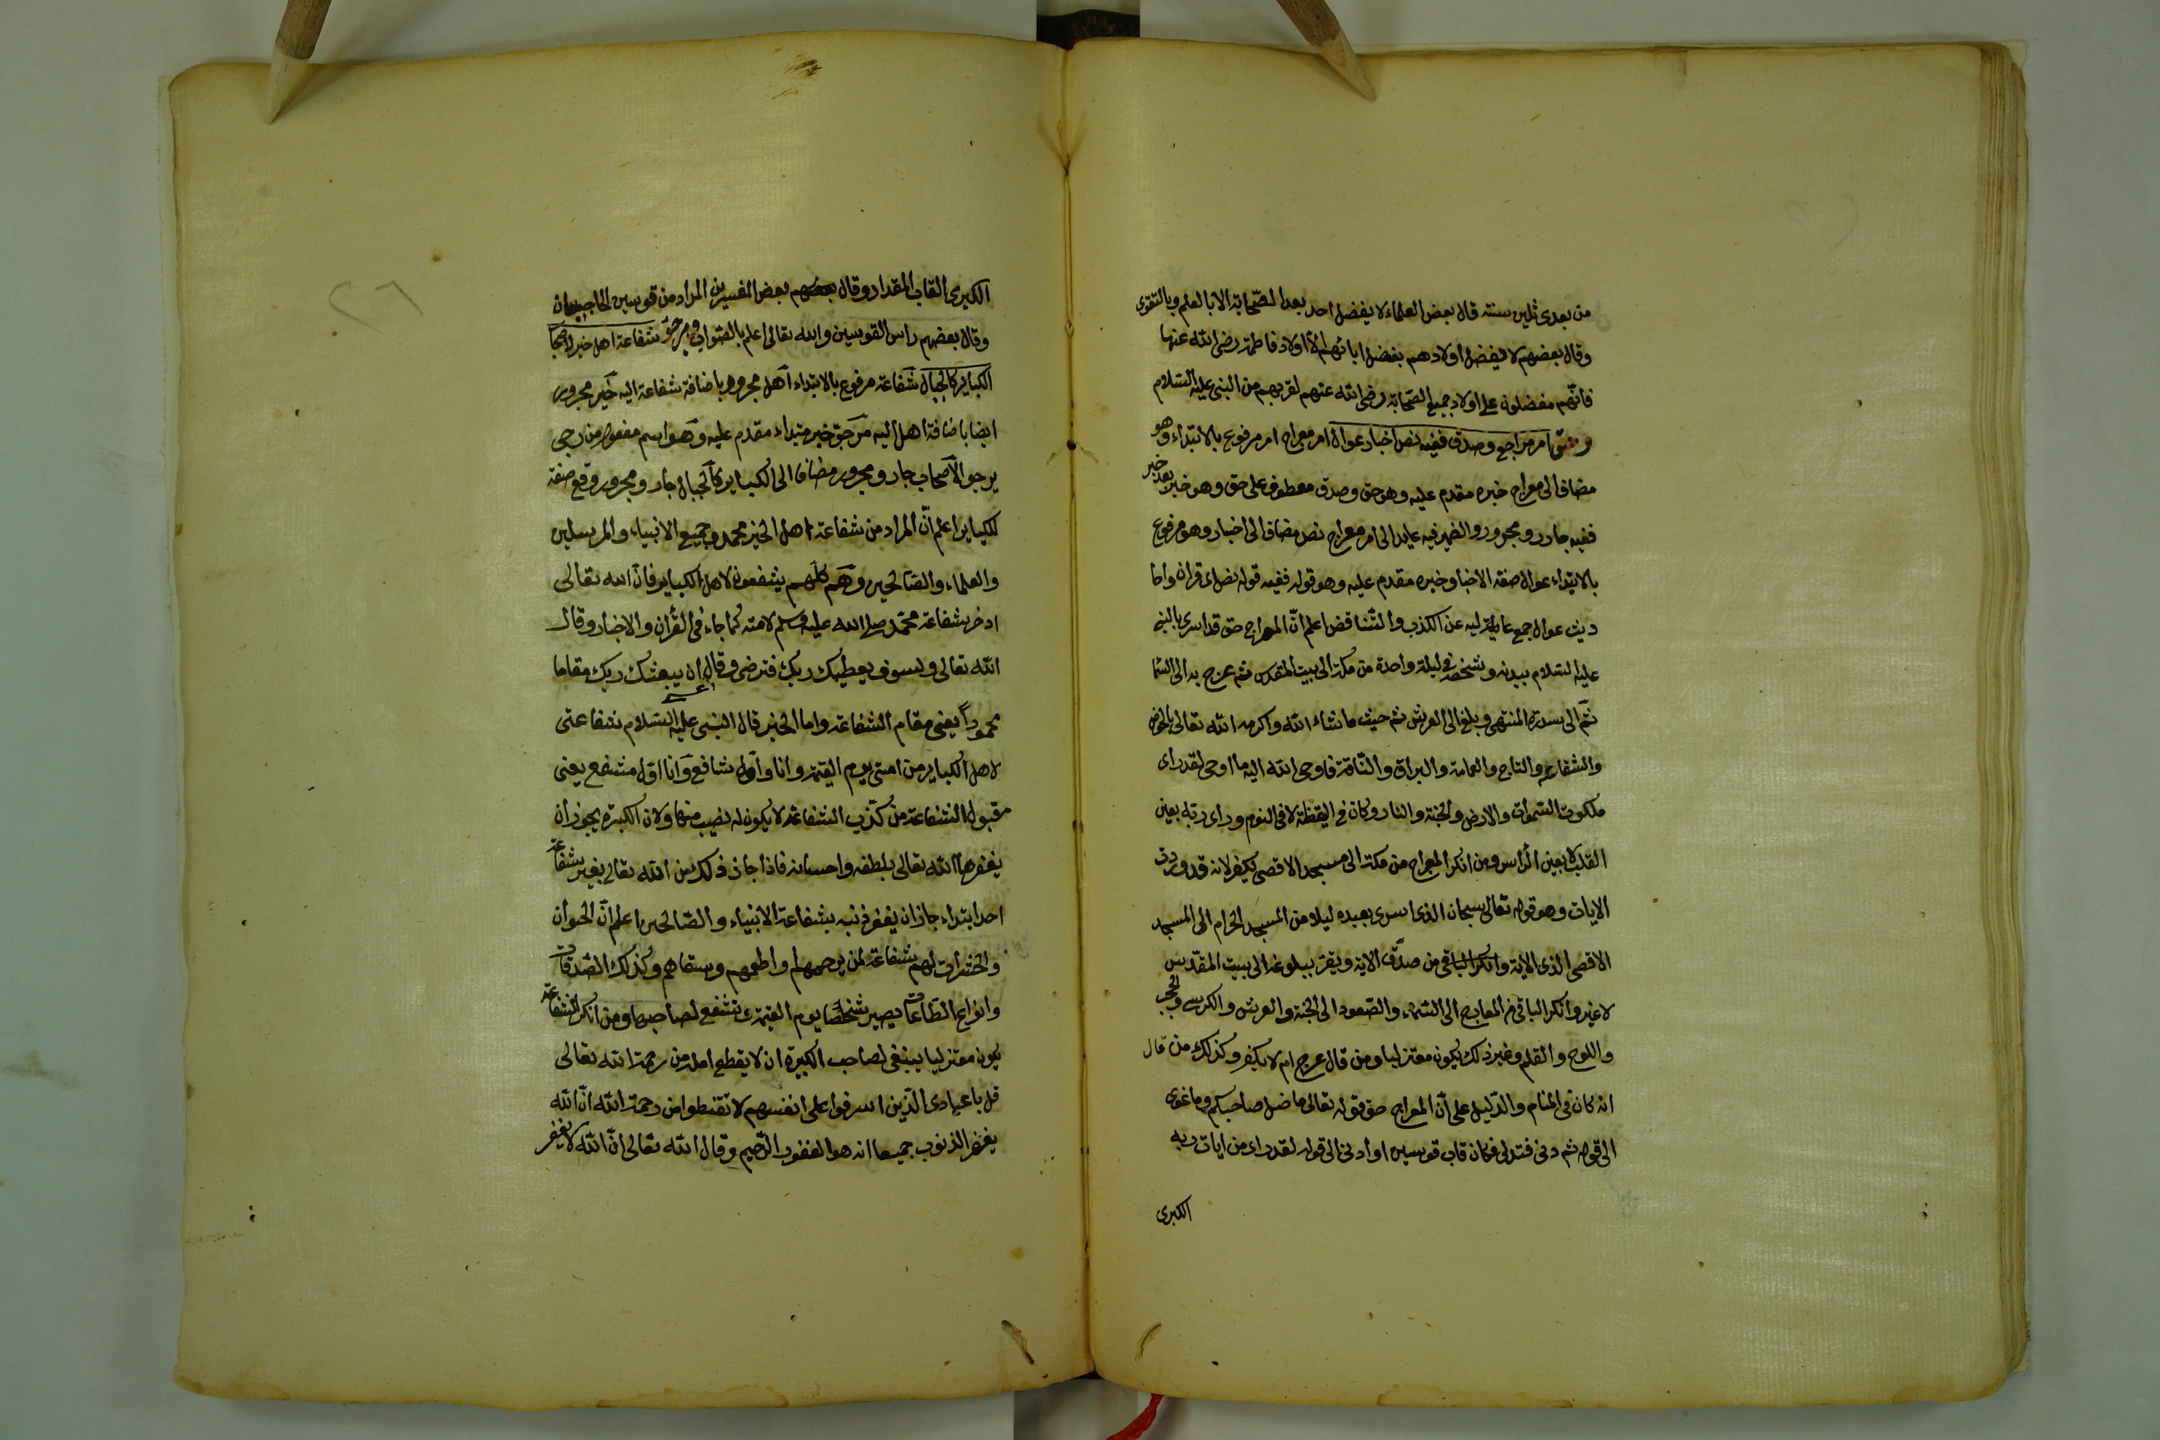 من بعدى ثلثين سنة قال بعض العلماء لا يفضل احد بعد الصحابة الا بالعلم وبالتقوى
وقال بعضهم لا يفضل اولادهم بفضل ابائهم الا اولاد فاطمة رضى الله عنها
فانهم مفضلون على اولاد جميع الصحابة رضى الله عنهم لقربهم من النبى عليه السلام
وحق امر معراج وصدق ففيه نص اخبار عوال امر معراج امر مرفوع بالابتداء وهو
مضاف الى معراج خبره مقدم عليه وهو حق وصدق معطوف على حق وهو خبر بعد خبر
ففيه جار ومجرور والضمير فيه عايد الى امر معراج نص مضاف الى اخبار وهو مرفوع
بالابتداء عوال صفة الاخبار وخبره مقدم عليه وهو قوله ففيه قوله نص اى قران واحا
ديث عوال جمع عالية عن الكذب والتناقض اعلم ان المعراج حق قد اسرى بالنبى
عليه السلام ببدنه وشخصه فى ليلة واحدة من مكة الى بيت المقدس ثم عرج به الى السما
ثم الى سدرة المنتهى وبلغ الى العرش ثم حيث ما شاء الله واكرمه الله تعالى بالحوض
والشفاعة والتاج والعمامة والبراق والناقة فاوحى الله اليه ما اوحى لقد راى
ملكوت السموات والارض والجنة والنار وكان فى اليقظة لا فى النوم وراى ربه بعين
القلب لا بعين الراس ومن انكر المعراج من مكة الى مسجد الاقصى يكفر لانه قد ورد فى
الايات وهو قوله تعالى سبحان الذى اسرى بعبده ليلا من المسجد الحرام الى المسجد
الاقصى الذى الاية وانكر الباقى من صدق الاية ويقر ببلوغه الى بيت المقدس
لا غير وانكر الباقى من المعارج الى السماء والصعود الى الجنة والعرش والكرسى والحجب
واللوح والقلم وغير ذلك يكون معتزليا ومن قال عرج ام لا يكفر وكذلك من قال
انه كان فى المنام والدليل على ان المعراج حق قوله تعالى ما ضل صاحبكم وما غوى
الى قوله ثم دنى فتدلى فكان قاب قوسين او ادنى الى قوله لقد راى من ايات ربه
الكبرى
٢٦
الكبرى القاب المقدار وقال بعضهم بعض المفسرين المراد من قوسين الحاجبان
وقال بعضهم راس القوسين والله تعالى اعلم بالصواب ومرجو شفاعة اهل خير لاصحاب
الكباير كالجبال شفاعة مرفوع بالابتداء اهل مجرور باضافة شفاعة اليه خير مجرور
ايضا باضافة اهل اليه مرجو خبر مبتداء مقدم عليه وهو اسم مفعول من رجى
يرجو لاصحاب جار ومجرور مضاف الى الكباير كالجبال جار ومجرور وقع صفة
للكباير اعلم ان المراد من شفاعة اهل الخير محمد وجميع الانبياء والمرسلين
والعلماء والصالحين وهم كلهم يشفعون لاهل الكباير فان الله تعالى
ادخر شفاعة محمد صلى الله عليه وسلم لامته كما جاء فى القران والاخبار وقال
الله تعالى ولسوف يعطيك ربك فترضى وقال عسى ان يبعثك ربك مقاما
محمودا يعنى مقام الشفاعة واما الخبر قال النبى عليه السلام شفاعتى
لاهل الكباير من امتى يوم القيمة وانا واول شافع وانا اول مشفع يعنى
مقبول الشفاعة من كذب الشفاعة لا يكون له نصيب منها ولان الكبيرة يجوز ان
يغفرها الله تعالى بلطفه واحسانه فاذا جاز ذلك من الله تعالى بغير شفاعة
احد ابتداء جاز ان يغفر ذنبه بشفاعة الانبياء والصالحين اعلم ان الحيوان
والحشرات لهم شفاعة لمن يرحمهم واطعمهم وسقاهم وكذلك الصدقات
وانواع الطاعات يصير شخصا يوم القيمة تشفع لصاحبها ومن انكر الشفاعة
يكون معتزليا ينبغى لصاحب الكبيرة ان لا يقطع امله من رحمة الله تعالى
قل يا عبادى الذين اسرفوا على انفسهم لا تقنطوا من رحمة الله ان الله
يغفر الذنوب جميعا انه هو الغفور الرحيم وقال الله تعالى ان الله لا يغفر